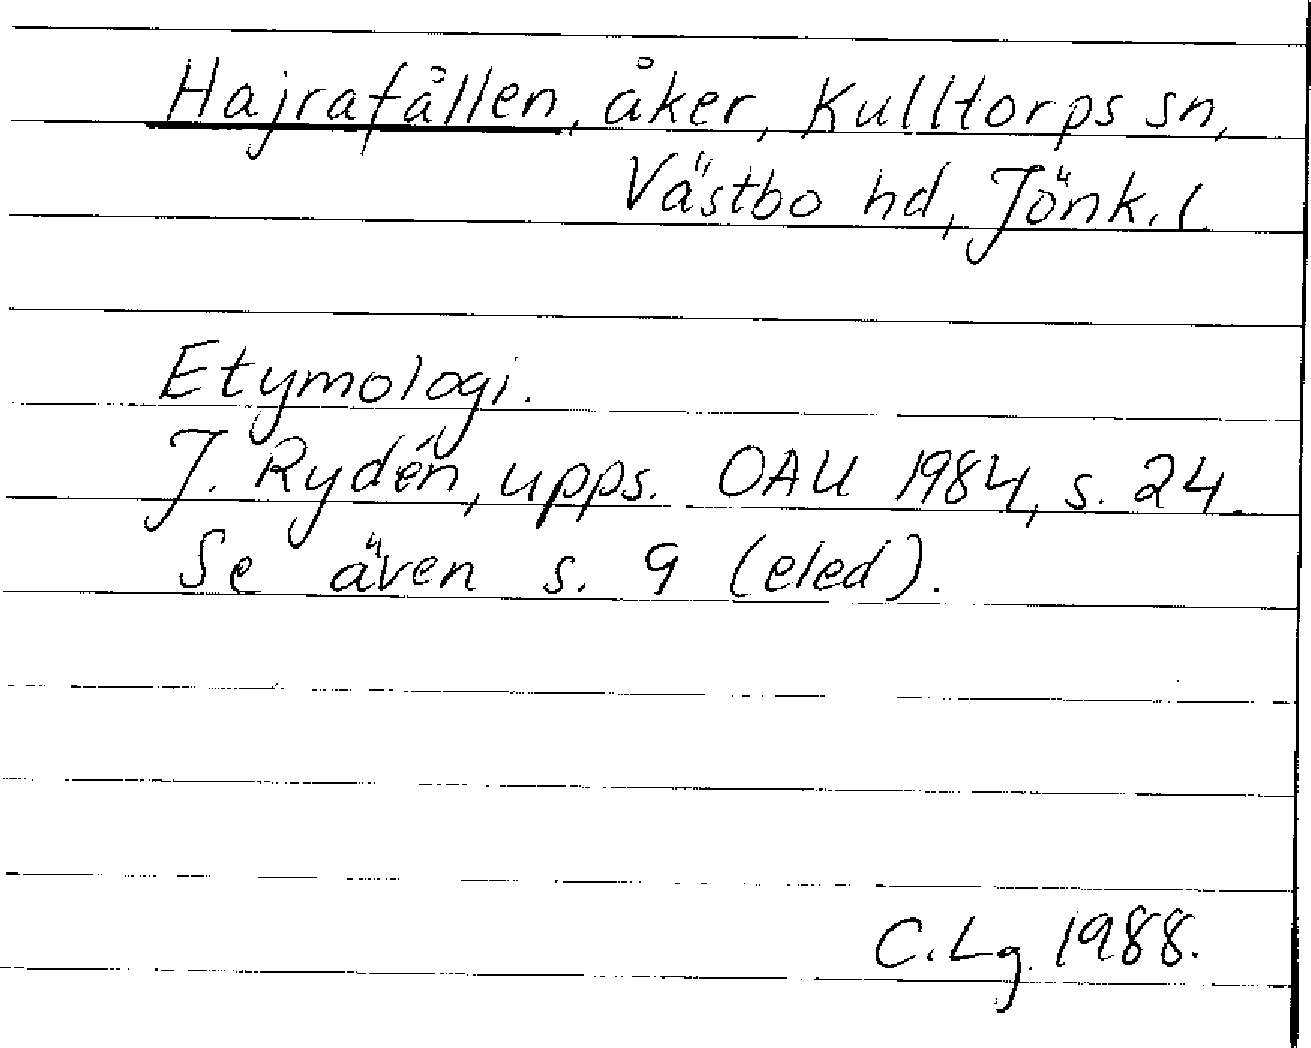 Hajrafållen, åker, Kulltorps sn,
Västbo hd, Jönk. l.
Etymologi.
J. Rydén, upps. OAU 1984, s. 24.
Se även s. 9 (eled).
C. Lg. 1988.